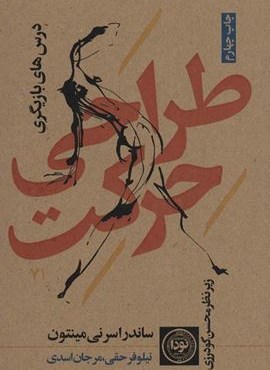 چاپ چهارم
درس‌های بازیگری
طراحی
حرکت
۷۱
زیر نظر محسن کودرزی
ساندرا سرنی مینتون
نیلوفر حقی، مرجان اسدی
نودا